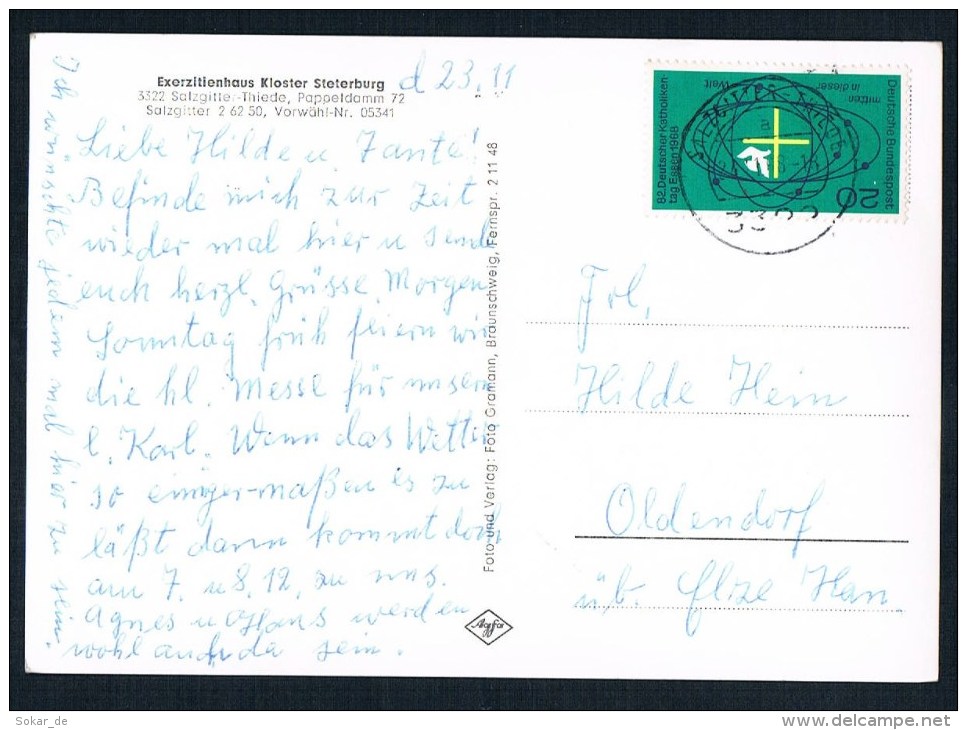 Exerzitienhaus Kloster Steterburg
3322 Salzgitter-Thiede, Pappeldamm 72
Salzgitter 2 62 50, Vorwähl-Nr. 05341
d 23.11
Liebe Hilde u Tante!
Befinde mich zur Zeit
wieder mal hier u sende
euch herzl. Grüsse. Morgen
Sonntag früh feiern wir
die hl. Messe für unsern
l. Karl. Wenn das Wetter
so einiger-maßen es zu
läßt dann kommt doch
am 7. u 8. 12. zu uns.
Agnes u Hans werden
wohl auch da sein.
Ich wünschte jedem mal hier zu sein.
Foto und Verlag: Foto Gramann, Braunschweig, Fernspr. 2 11 48
Agfa
Deutsche Bundespost
20
mitten
in dieser
Welt
82. Deutscher Katholiken-
tag Essen 1968
SALZGITTER
Frl.
Hilde Hein
Oldendorf
üb. Elze Han.
Sokar_de
www.delcampe.net